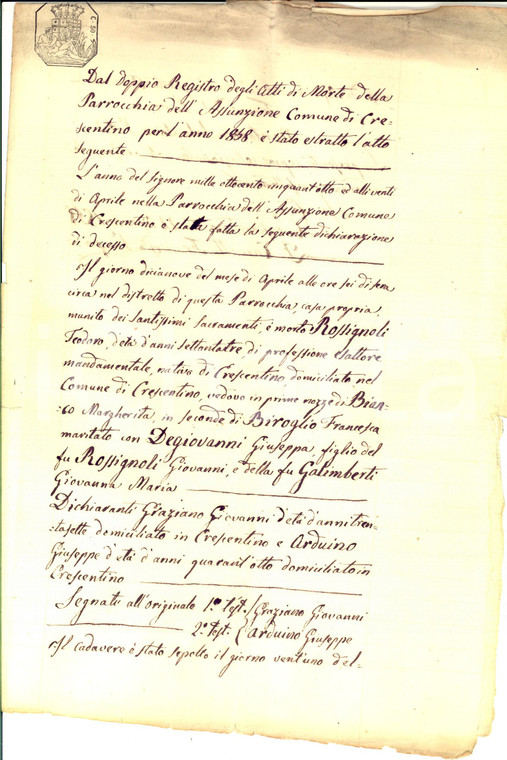 C. 50
Dal Doppio Registro degli Atti di Morte della
Parrocchia dell' Assunzione Comune di Cre-
scentino per l'anno 1858 è stato estratto l'atto
seguente
L'anno del Signore mille ottocento cinquant'otto ed alli venti
di Aprile nella Parrocchia dell' Assunzione Comune
di Crescentino è stata fatta la seguente dichiarazione
di decesso
Il giorno diciannove del mese di Aprile alle ore sei di sera
circa nel distretto di questa Parrocchia casa propria
munito dei Santissimi Sacramenti, è morto Rossignoli
Teodoro, d'età d'anni settantatre di professione Esattore
mandamentale, nativo di Crescentino domiciliato nel
Comune di Crescentino, vedovo in prime nozze di Bian-
co Margherita, in seconde di Biroglio Francesca
maritato con Degiovanni Giuseppa, figlio del
fu Rossignoli Giovanni, e della fu Galimberti
Giovanna Maria
Dichiaranti Graziano Giovanni d'età d'anni tren-
tasette domiciliato in Crescentino e Arduino
Giuseppe d'età d'anni quarant'otto domiciliato in
Crescentino
Segnati all'originale 1° Test. Graziano Giovanni
2° Test. Arduino Giuseppe
Il cadavere è stato sepolto il giorno vent'uno del-